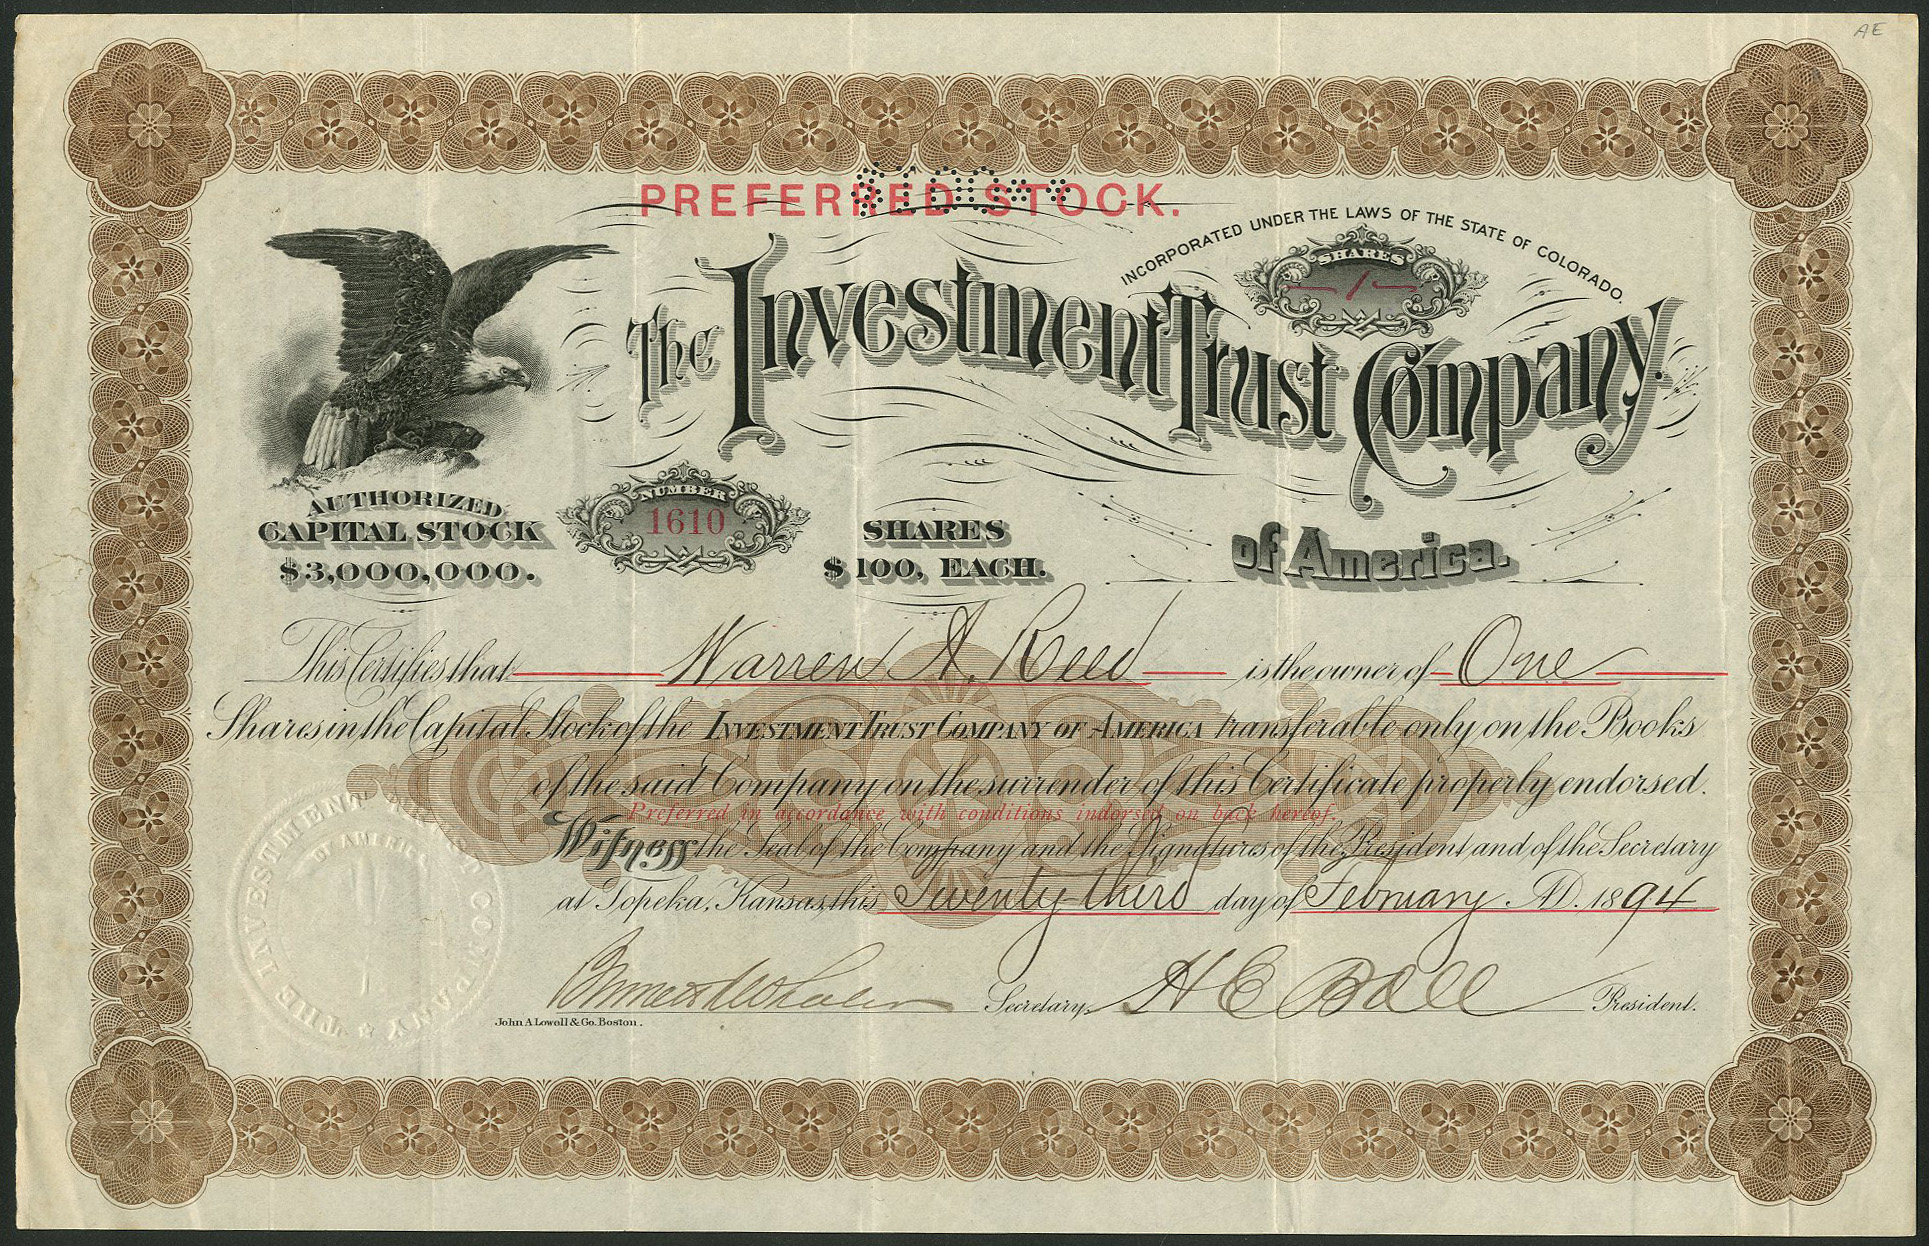 AE
PREFERRED STOCK.
$100
INCORPORATED UNDER THE LAWS OF THE STATE OF COLORADO.
SHARES
1
The Investment Trust Company
of America.
AUTHORIZED
CAPITAL STOCK
$3,000,000.
NUMBER
1610
SHARES
$100, EACH.
This Certifies that Warren A. Reed is the owner of One
Shares in the Capital Stock of the INVESTMENT TRUST COMPANY OF AMERICA transferable only on the Books
of the said Company on the surrender of this Certificate properly endorsed.
Preferred in accordance with conditions indorsed on back hereof.
Witness the Seal of the Company and the Signatures of the President and of the Secretary
at Topeka, Kansas, this Twenty-third day of February A.D. 1894
Secretary.
H E Ball President.
John A Lowell & Co. Boston.
THE INVESTMENT TRUST COMPANY
OF AMERICA